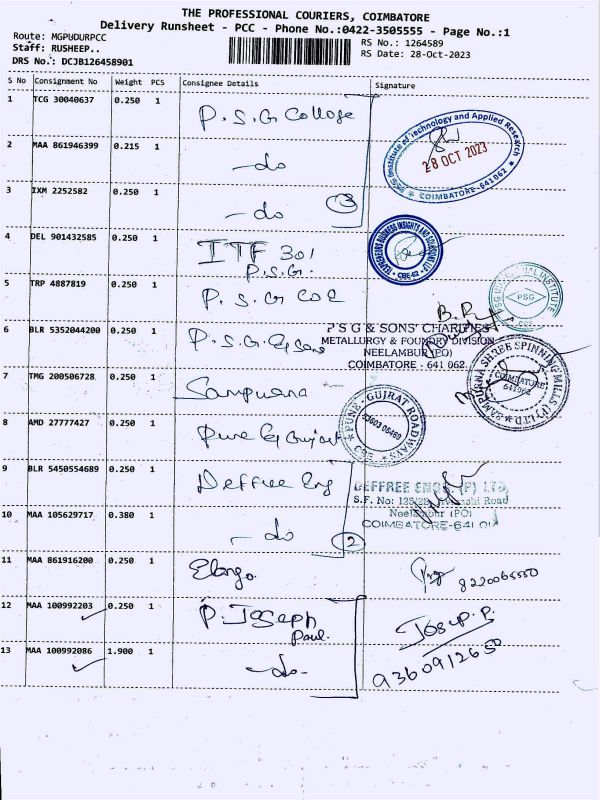 THE PROFESSIONAL COURIERS, COIMBATORE
Delivery Runsheet - PCC - Phone No.:0422-3505555 - Page No.:1
Route: MGPUDURPCC
Staff: RUSHEEP..
DRS No.: DCJB126458901
RS No.: 1264589
RS Date: 28-Oct-2023
S No Consignment No Weight PCS Consignee Details Signature
1 TCG 30040637 0.250 1 P.S.G College
Institute of Technology and Applied Research
28 OCT 2023
COIMBATORE-641062
2 MAA 861946399 0.215 1 -do
3 IXM 2252582 0.250 1 -do 3
4 DEL 901432585 0.250 1 ITF 301
P.S.G.
CBE-62
5 TRP 4887819 0.250 1 P.S.G COE
PSG INSTITUTE
PSG
6 BLR 5352044200 0.250 1 P.S.G & Sons
P S G & SONS' CHARITIES
METALLURGY & FOUNDRY DIVISION
NEELAMBUR (PO)
COIMBATORE - 641 062.
7 TMG 200506728 0.250 1 Sampurna
SAMPURNA SHREE SPINNING MILLS (P) LTD
COIMBATORE
641062
8 AMD 27777427 0.250 1 Pune Gujrat
PUNE - GUJRAT ROADWAYS
CBE
9 BLR 5450554689 0.250 1 Deffree Eng
DEFFREE ENGG. (P) LTD.
S.F. No: Road
Neelambur (PO)
COIMBATORE-641 014
10 MAA 105629717 0.380 1 -do 2
11 MAA 861916200 0.250 1 Elango
8220065550
12 MAA 100992203 0.250 1 P. Joseph
Paul.
Josep. P.
13 MAA 100992086 1.900 1 -do-
9360912650